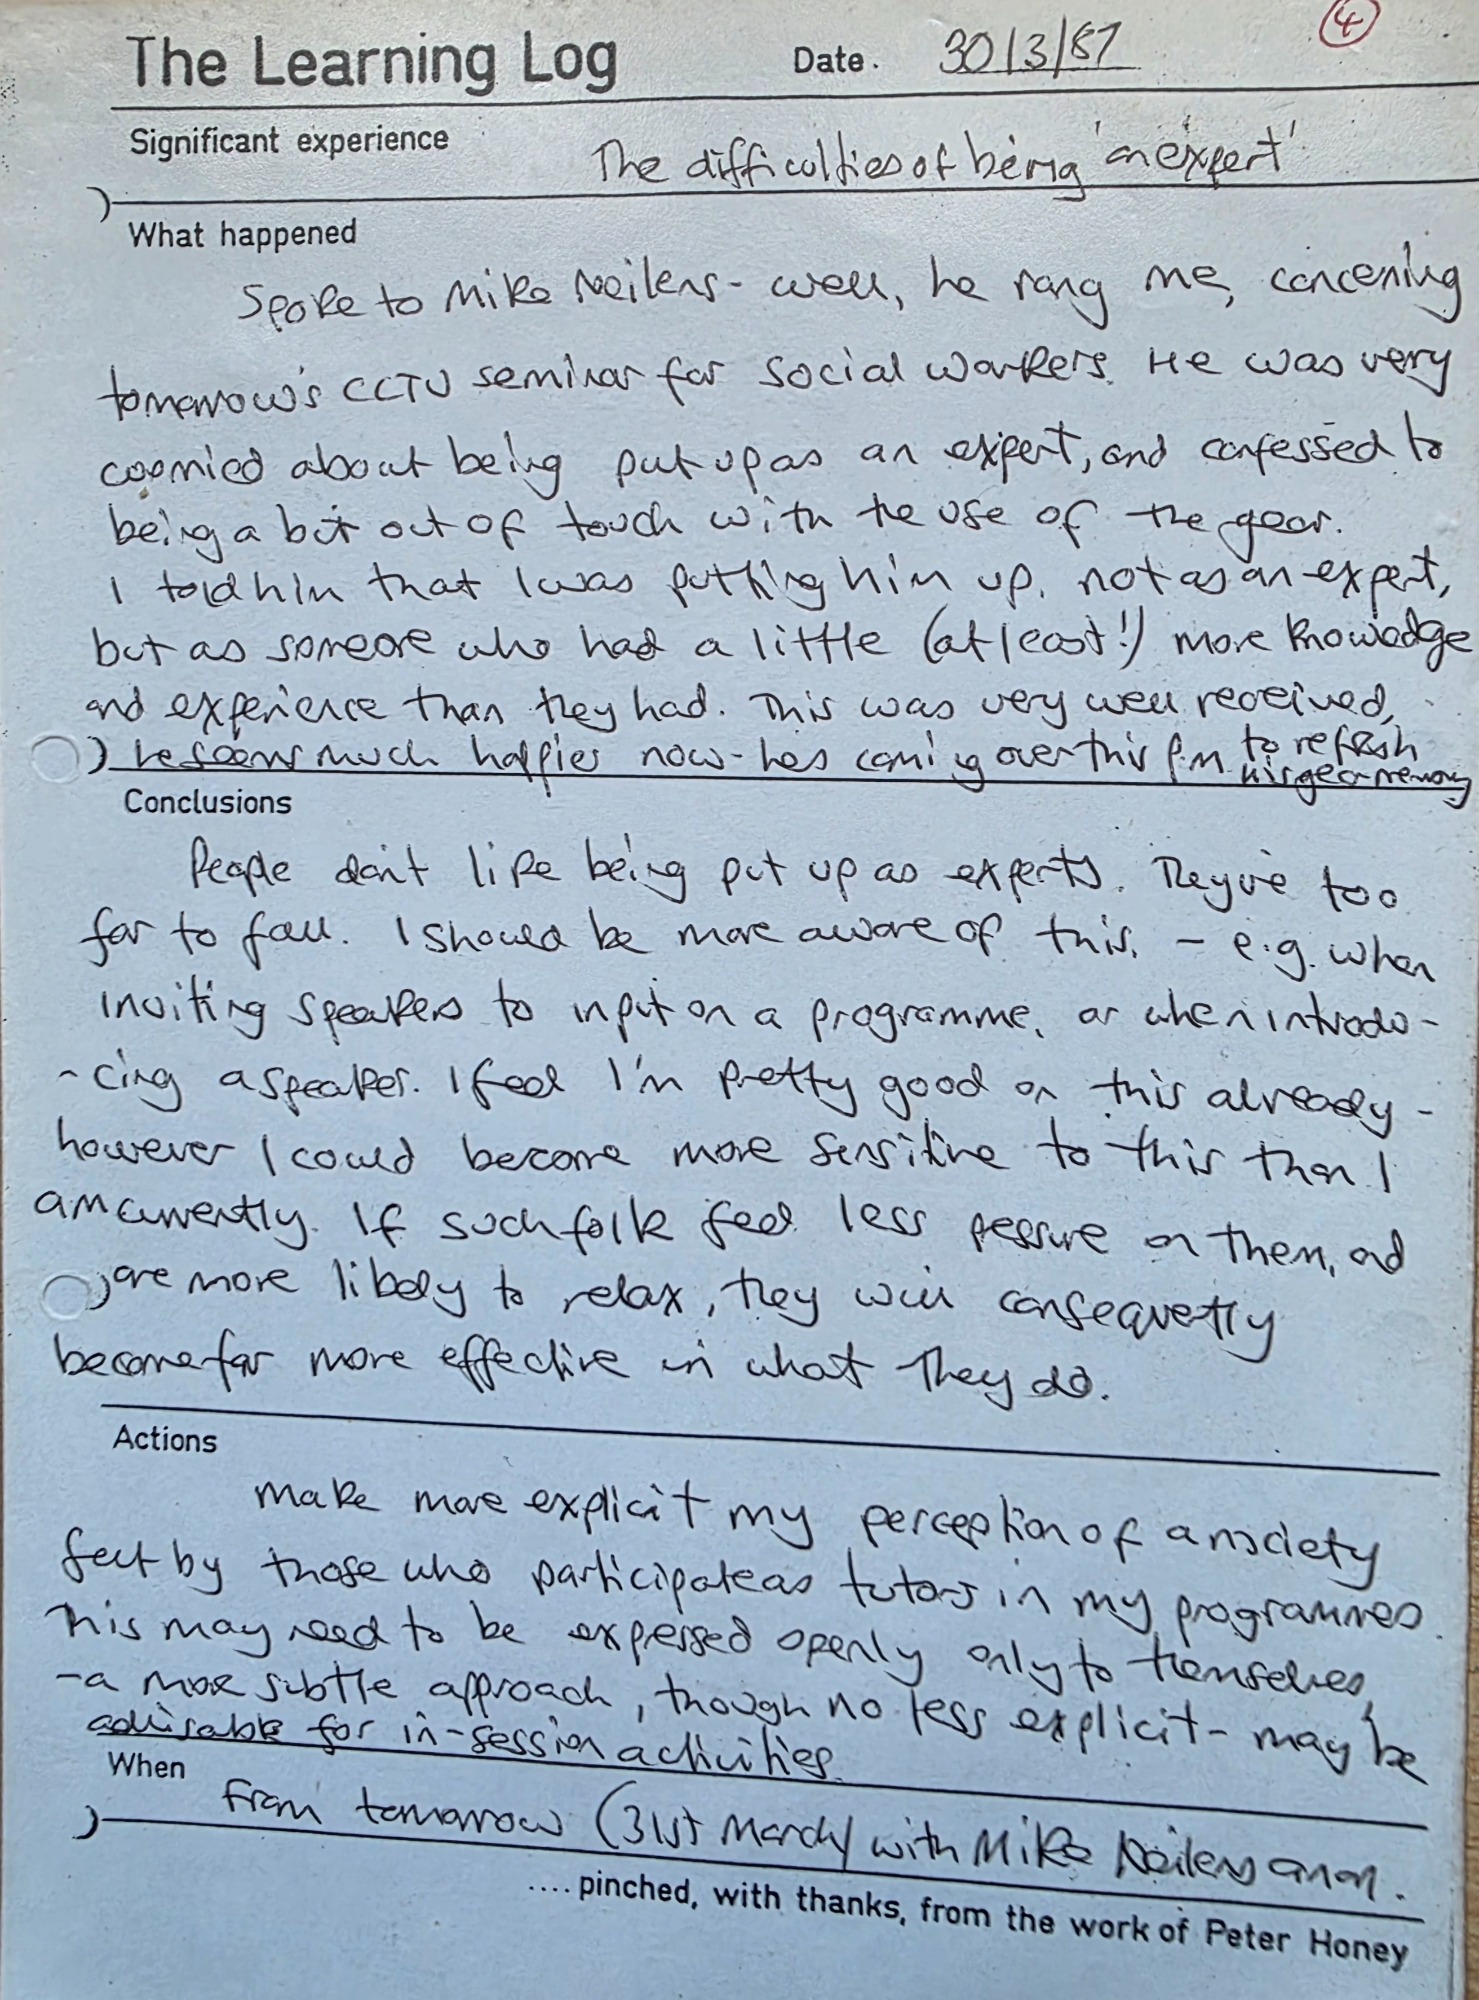 4
The Learning Log Date. 30/3/87
Significant experience The difficulties of being 'an expert'
What happened
Spoke to Mike Neilens - well, he rang me, concerning
tomorrow's CCTV seminar for social workers. He was very
worried about being put up as an expert, and confessed to
being a bit out of touch with the use of the gear.
I told him that I was putting him up, not as an expert,
but as someone who had a little (at least!) more knowledge
and experience than they had. This was very well received,
he seems much happier now - he's coming over this p.m. to refresh
his gear-memory
Conclusions
People don't like being put up as experts. They've too
far to fall. I should be more aware of this. - e.g. when
inviting speakers to input on a programme, or when introdu-
-cing a speaker. I feel I'm pretty good on this already -
however I could become more sensitive to this than I
am currently. If such folk feel less pressure on them, and
are more likely to relax, they will consequently
become far more effective in what they do.
Actions
Make more explicit my perception of anxiety
felt by those who participate as tutors in my programmes.
This may need to be expressed openly only to themselves,
- a more subtle approach, though no less explicit - may be
advisable for in-session activities.
When
From tomorrow (31st March) with Mike Neilens anon.
.... pinched, with thanks, from the work of Peter Honey